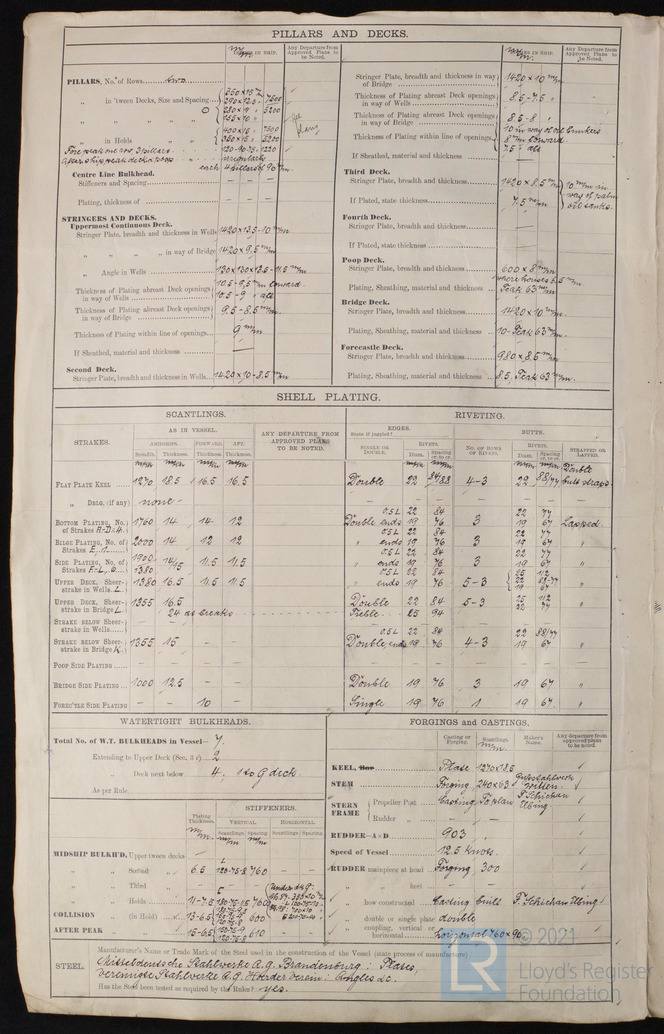 PILLARS AND DECKS.
m/m IN SHIP.
Any Departure from Approved Plans to be Noted.
PILLARS, No. of Rows two
„ in 'tween Decks, Size and Spacing
in Holds
400 × 15 . 7500
each 4 pillars of 90 m/m
Centre Line Bulkhead.
Stiffeners and Spacing
Plating, thickness of
STRINGERS AND DECKS.
Uppermost Continuous Deck.
Stringer Plate, breadth and thickness in Wells 1420 × 13.5 - 10 m/m
„ „ „ „ in way of Bridge 1420 × 9.5 m/m
„ Angle in Wells 130 × 130 × 13.5 - 11.5 m/m
Thickness of Plating abreast Deck openings in way of Wells 10.5 - 9.5 m/m forward. 10.5 - 9 „ aft
Thickness of Plating abreast Deck openings in way of Bridge 9.5 - 8.5 m/m.
Thickness of Plating within line of openings 9 m/m.
If Sheathed, material and thickness —
Second Deck.
Stringer Plate, breadth and thickness in Wells 1420 × 10 - 8.5 m/m
m/m IN SHIP.
Any Departure from Approved Plans to be Noted.
Stringer Plate, breadth and thickness in way of Bridge 1420 × 10 m/m
Thickness of Plating abreast Deck openings in way of Wells 8.5 - 7.5 „
Thickness of Plating abreast Deck openings in way of Bridge 8.5 - 8 „
Thickness of Plating within line of openings 10 in way of oil bunkers 8 m/m forward. 7.5 „ aft
If Sheathed, material and thickness —
Third Deck.
Stringer Plate, breadth and thickness 1420 × 8.5 m/m
If Plated, state thickness 7.5 m/m
10 m/m in way of palm oil tanks.
Fourth Deck.
Stringer Plate, breadth and thickness —
If Plated, state thickness —
Poop Deck.
Stringer Plate, breadth and thickness 600 × 8 m/m
Plating, Sheathing, material and thickness Teak 63 m/m
Bridge Deck.
Stringer Plate, breadth and thickness 1420 × 10 m/m.
Plating, Sheathing, material and thickness 10 - Teak 63 m/m.
Forecastle Deck.
Stringer Plate, breadth and thickness 980 × 8.5 m/m
Plating, Sheathing, material and thickness 8.5. Teak 63 m/m.
SHELL PLATING.
SCANTLINGS.
RIVETING.
STRAKES.
AS IN VESSEL.
ANY DEPARTURE FROM APPROVED PLANS TO BE NOTED.
EDGES.
State if joggled?
BUTTS.
AMIDSHIPS.
FORWARD.
AFT.
SINGLE OR DOUBLE.
RIVETS.
NO. OF ROWS OF RIVETS.
RIVETS.
STRAPPED OR LAPPED.
Breadth.
Thickness.
Thickness.
Thickness.
Diam.
Spacing cr. to cr.
Diam.
Spacing cr. to cr.
FLAT PLATE KEEL 1270 18.5 16.5 16.5 Double 22 84/88 4-3 22 88/77 Double butt straps
„ DBLG. (if any) none
BOTTOM PLATING, No. of Strakes A-D=4. 1760 14 14 12 Double 0.5L 22 84 ends 19 76 3 22 77 19 67 Lapped
BILGE PLATING, No. of Strakes E, 1. 2000 14 12 12 „ 0.5L 22 84 ends 19 76 3 22 77 19 67 „
SIDE PLATING, No. of Strakes F-L, 6. 1900 1380 14/15 11.5 11.5 „ 0.5L 22 84 ends 19 76 3 22 77 19 67 „
UPPER DECK, Sheer-strake in Wells. L. 1380 16.5 11.5 11.5 „ 0.5L 22 84 ends 19 76 5-3 25 112 22 88-77 19 67 „
UPPER DECK, Sheer-strake in Bridge L. 1355 16.5 24 at breaks Double 22 84 Treble 25 94 5-3 25 112 22 77 „
STRAKE BELOW Sheer-strake in Wells
STRAKE BELOW Sheer-strake in Bridge K. 1355 15 — — Double 0.5L 22 84 ends 19 76 4-3 22 88/77 19 67 „
POOP SIDE PLATING
BRIDGE SIDE PLATING 1000 12.5 — — Double 19 76 3 19 67 „
FORECTLE SIDE PLATING — — 10 — Single 19 76 1 19 67. „
WATERTIGHT BULKHEADS.
Total No. of W.T. BULKHEADS in Vessel— 7.
Extending to Upper Deck (Sec. 3 c) 2
„ Deck next below 4. 1 to G deck
As per Rule
Plating Thickness.
STIFFENERS.
VERTICAL
HORIZONTAL
Scantlings
Spacing
Scantlings
Spacing
MIDSHIP BULKH'D, Upper tween decks —
„ „ Second „ 6.5 120-75-8 760 — —
„ „ Third „ —
„ „ Holds
COLLISION „ (in Hold) 600
AFTER PEAK „ „ 610 — —
FORGINGS and CASTINGS.
Casting or Forging.
Scantlings.
Maker's Name.
Any departure from approved plans to be noted.
KEEL, Bar Plate 1270×18.5
STEM Forging 240×63 Gussstahlwerk Witten.
STERN FRAME
Propeller Post Casting To plan F. Schichau Elbing.
Rudder „ — —
RUDDER—A×D 903
Speed of Vessel 12.5 Knots.
RUDDER mainpiece at head Forging 300
„ „ heel — —
„ how constructed Casting Built F. Schichau Elbing
„ double or single plate double
„ coupling, vertical or horizontal horizontal 760×90
STEEL.
Manufacturer's Name or Trade Mark of the Steel used in the construction of the Vessel (state process of manufacture)
Mitteldeutsche Stahlwerke A.G. Brandenburg: Plates,
Vereinigte Stahlwerke A.G. Hoerder Verein: Angles &c.
Has the Steel been tested as required by the Rules? yes.
© 2021
LR
Lloyd's Register
Foundation